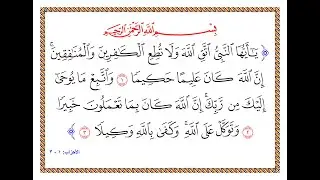 بِسْمِ اللَّهِ الرَّحْمَٰنِ الرَّحِيمِ
﴿ يَا أَيُّهَا النَّبِيُّ اتَّقِ اللَّهَ وَلَا تُطِعِ الْكَافِرِينَ وَالْمُنَافِقِينَ ۗ
إِنَّ اللَّهَ كَانَ عَلِيمًا حَكِيمًا ۝١ وَاتَّبِعْ مَا يُوحَىٰ
إِلَيْكَ مِن رَّبِّكَ ۚ إِنَّ اللَّهَ كَانَ بِمَا تَعْمَلُونَ خَبِيرًا
۝٢ وَتَوَكَّلْ عَلَى اللَّهِ ۚ وَكَفَىٰ بِاللَّهِ وَكِيلًا ۝٣ ﴾
الأحزاب: ١ - ٣